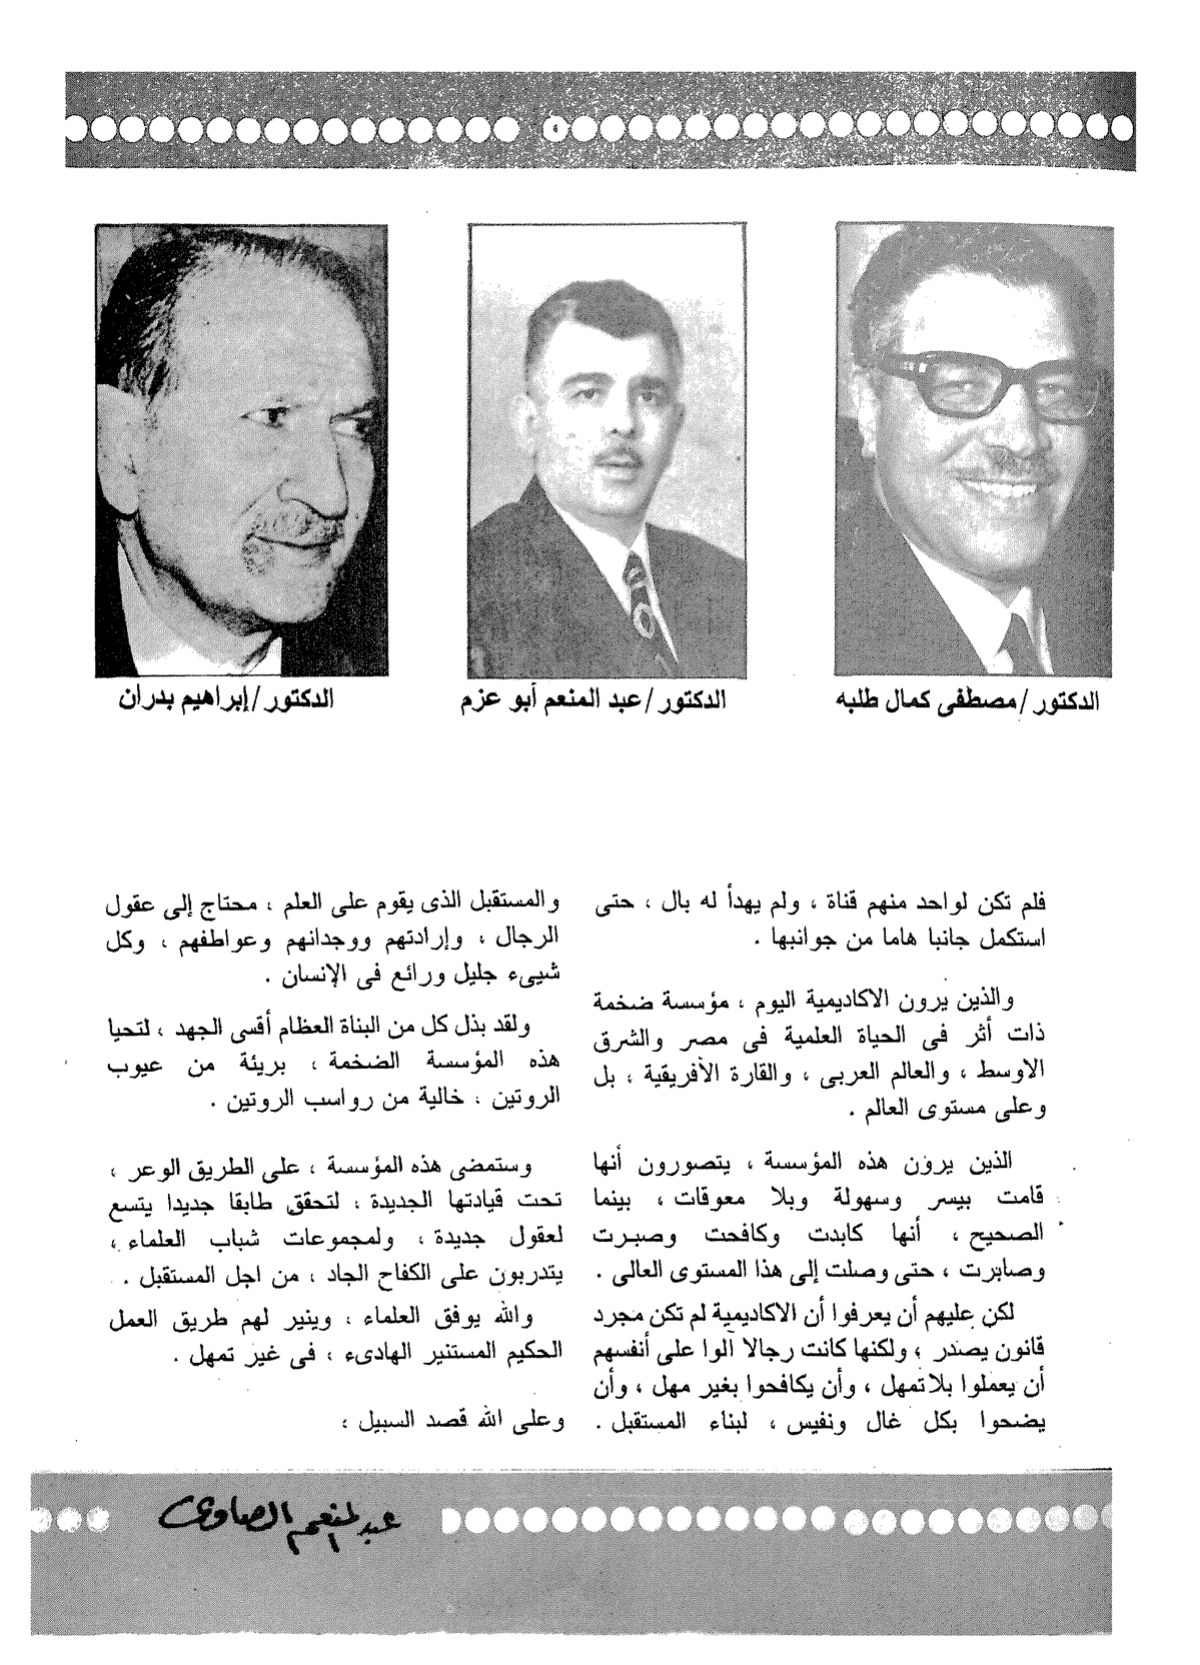 الدكتور/مصطفى كمال طلبه
الدكتور/عبد المنعم أبو عزم
الدكتور/إبراهيم بدران
فلم تكن لواحد منهم قناة ، ولم يهدأ له بال ، حتى
استكمل جانبا هاما من جوانبها .
والذين يرون الاكاديمية اليوم ، مؤسسة ضخمة
ذات أثر فى الحياة العلمية فى مصر والشرق
الاوسط ، والعالم العربى ، والقارة الأفريقية ، بل
وعلى مستوى العالم .
الذين يرون هذه المؤسسة ، يتصورون أنها
قامت بيسر وسهولة وبلا معوقات ، بينما
الصحيح ، أنها كابدت وكافحت وصبرت
وصابرت ، حتى وصلت إلى هذا المستوى العالى .
لكن عليهم أن يعرفوا أن الاكاديمية لم تكن مجرد
قانون يصدر ، ولكنها كانت رجالا آلوا على أنفسهم
أن يعملوا بلا تمهل ، وأن يكافحوا بغير مهل ، وأن
يضحوا بكل غال ونفيس ، لبناء المستقبل .
والمستقبل الذى يقوم على العلم ، محتاج إلى عقول
الرجال ، وإرادتهم ووجدانهم وعواطفهم ، وكل
شيىء جليل ورائع فى الإنسان .
ولقد بذل كل من البناة العظام أقسى الجهد ، لتحيا
هذه المؤسسة الضخمة ، بريئة من عيوب
الروتين ، خالية من رواسب الروتين .
وستمضى هذه المؤسسة ، على الطريق الوعر ،
تحت قيادتها الجديدة ، لتحقق طابقا جديدا يتسع
لعقول جديدة ، ولمجموعات شباب العلماء ،
يتدربون على الكفاح الجاد ، من اجل المستقبل .
والله يوفق العلماء ، وينير لهم طريق العمل
الحكيم المستنير الهادىء ، فى غير تمهل .
وعلى الله قصد السبيل ،
عبد المنعم الصاوى